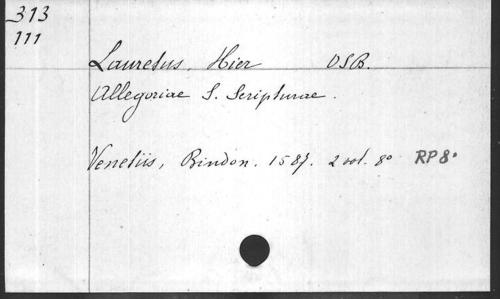 313
111
Lauretus, Hier OSB.
Allegoriae S. Scripturae.
Venetiis, Bindon. 1587. 2 vol. 8º RP 8º